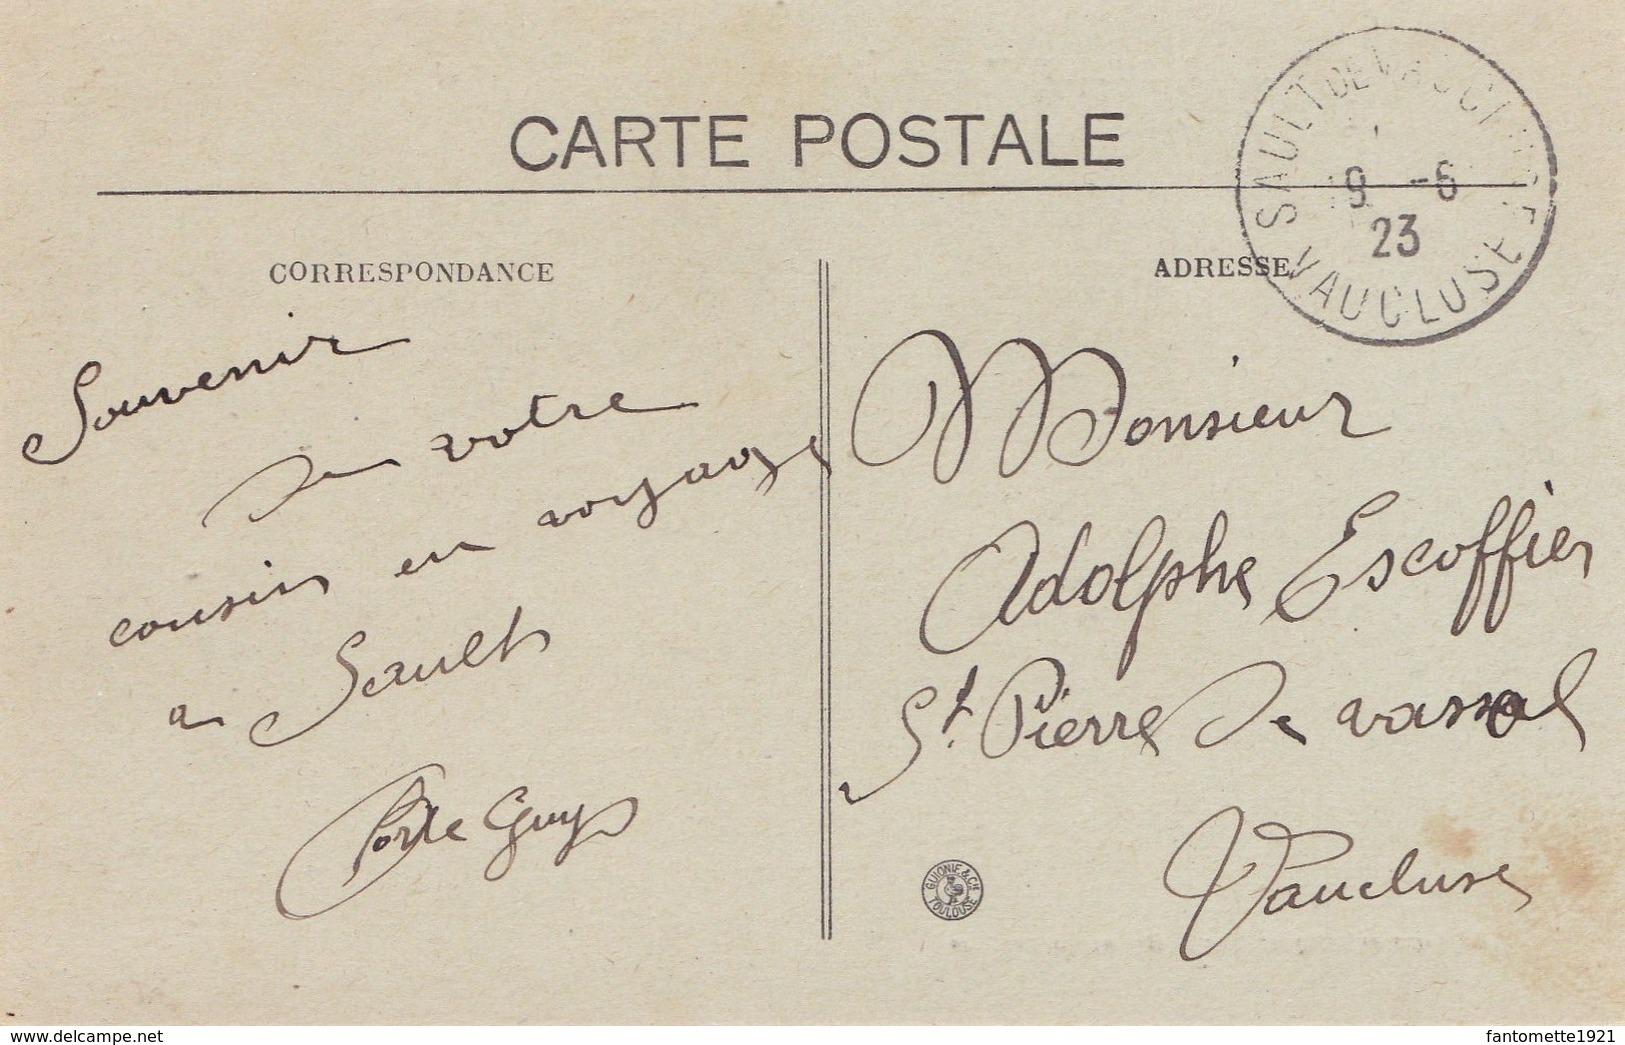 CARTE POSTALE
SAULT DE VAUCLUSE
9 -6
23
VAUCLUSE
CORRESPONDANCE
Souvenir
de votre
cousin en voyage
a Sault
Guy
ADRESSE
Monsieur
Adolphe Escoffier
St. Pierre de vassol
Vaucluse
GUIONIE & Cie
TOULOUSE
www.delcampe.net
fantomette1921